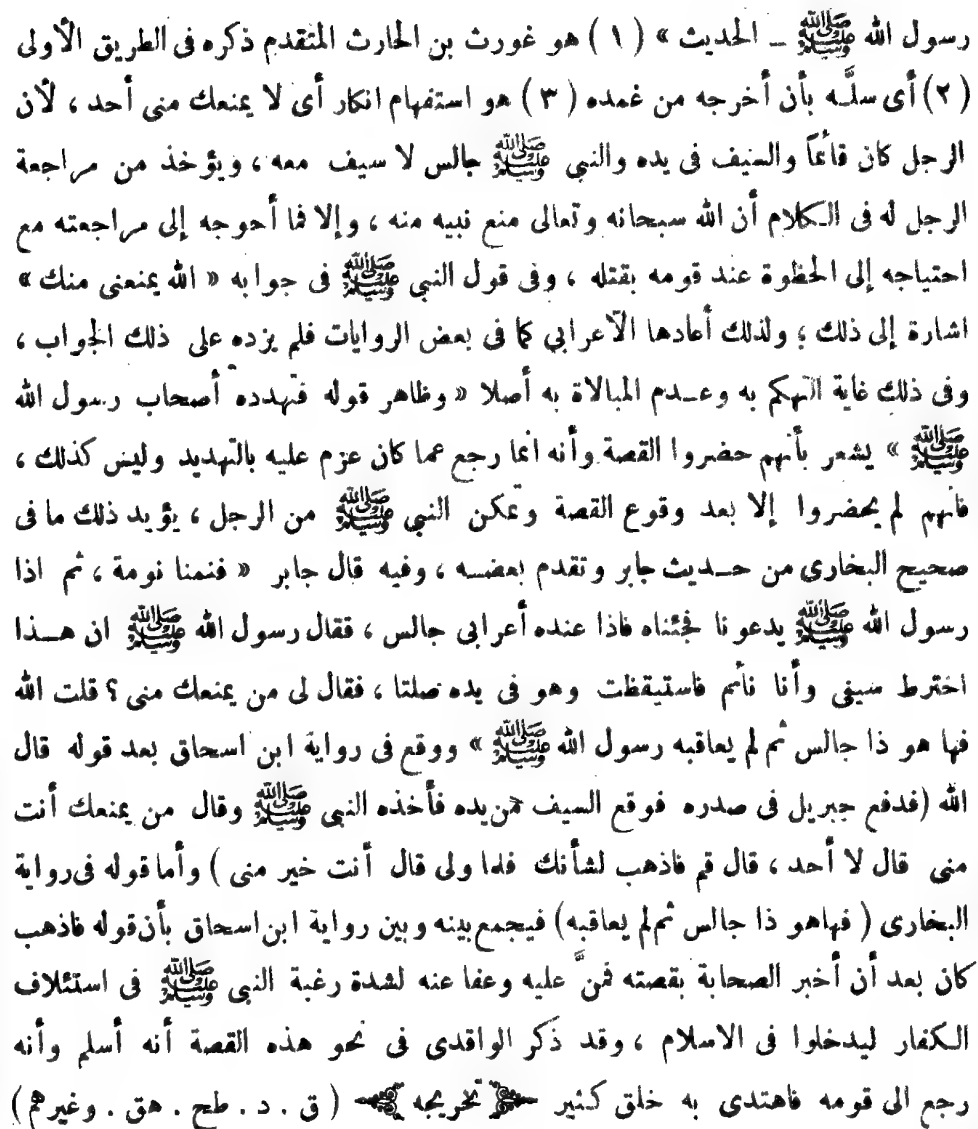 رسول الله ﷺ ــ الحديث » ( ١ ) هو غورث بن الحارث المتقدم ذكره فى الطريق الأولى
( ٢ ) أى سلَّه بأن أخرجه من غمده ( ٣ ) هو استفهام انكار أى لا يمنعك منى أحد ، لأن
الرجل كان قائماً والسيف فى يده والنبى ﷺ جالس لا سيف معه ، ويؤخذ من مراجعة
الرجل له فى الكلام أن الله سبحانه وتعالى منع نبيه منه ، وإلا فما أحوجه إلى مراجعته مع
احتياجه إلى الحظوة عند قومه بقتله ، وفى قول النبى ﷺ فى جوابه « الله يمنعنى منك »
اشارة إلى ذلك ؛ ولذلك أعادها الأعرابي كما فى بعض الروايات فلم يزده على ذلك الجواب ،
وفى ذلك غاية التهكم به وعدم المبالاة به أصلا « وظاهر قوله فتهدده أصحاب رسول الله
ﷺ » يشعر بأنهم حضروا القصة وأنه انما رجع عما كان عزم عليه بالتهديد وليس كذلك ،
فانهم لم يحضروا إلا بعد وقوع القصة وتمكن النبى ﷺ من الرجل ، يؤيد ذلك ما فى
صحيح البخارى من حديث جابر وتقدم بعضه ، وفيه قال جابر « فنمنا نومة ، ثم اذا
رسول الله ﷺ يدعونا فجئناه فاذا عنده أعرابى جالس ، فقال رسول الله ﷺ ان هذا
اخترط سيفى وأنا نائم فاستيقظت وهو فى يده صلتا ، فقال لى من يمنعك منى ؟ قلت الله
فها هو ذا جالس ثم لم يعاقبه رسول الله ﷺ » ووقع فى رواية ابن اسحاق بعد قوله قال
الله (فدفع جبريل فى صدره فوقع السيف من يده فأخذه النبى ﷺ وقال من يمنعك أنت
منى قال لا أحد ، قال قم فاذهب لشأنك فلما ولى قال أنت خير منى ) وأما قوله فى رواية
البخارى ( فهاهو ذا جالس ثم لم يعاقبه) فيجمع بينه وبين رواية ابن اسحاق بأن قوله فاذهب
كان بعد أن أخبر الصحابة بقصته فمنَّ عليه وعفا عنه لشدة رغبة النبى ﷺ فى استئلاف
الكفار ليدخلوا فى الاسلام ، وقد ذكر الواقدى فى نحو هذه القصة أنه أسلم وأنه
رجع الى قومه فاهتدى به خلق كثير تخريجه ( ق . د . طح . هق . وغيرهم )